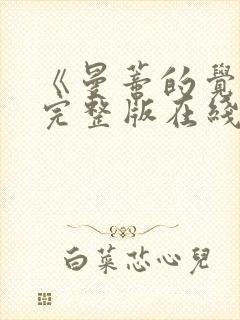 《曼蒂的覺
完整版在綫
白菜芯心兒